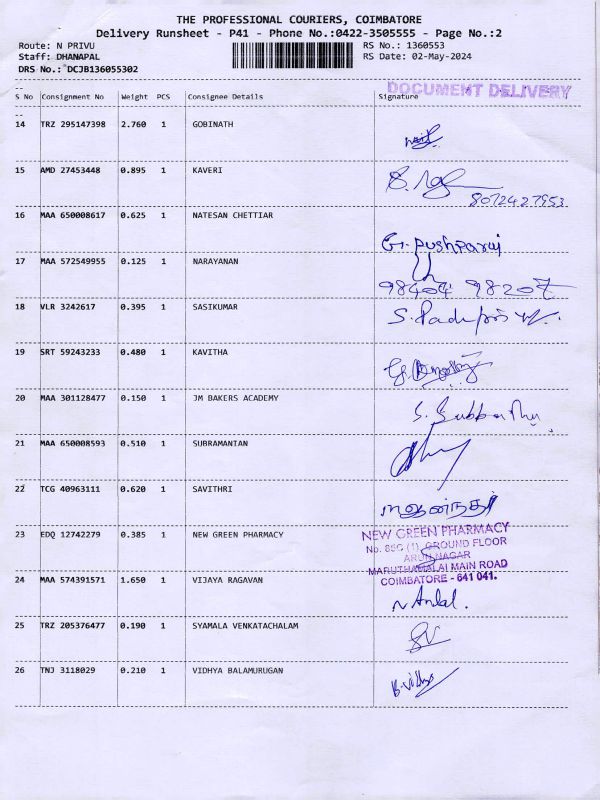 THE PROFESSIONAL COURIERS, COIMBATORE
Delivery Runsheet - P41 - Phone No.:0422-3505555 - Page No.:2
Route: N PRIVU
RS No.: 1360553
Staff: DHANAPAL
RS Date: 02-May-2024
DRS No.: DCJB136055302
DOCUMENT DELIVERY
S No Consignment No Weight PCS Consignee Details Signature
14 TRZ 295147398 2.760 1 GOBINATH
15 AMD 27453448 0.895 1 KAVERI
8072427953
16 MAA 650008617 0.625 1 NATESAN CHETTIAR
G. pushparaj
17 MAA 572549955 0.125 1 NARAYANAN
98404 98207
18 VLR 3242617 0.395 1 SASIKUMAR
19 SRT 59243233 0.480 1 KAVITHA
20 MAA 301128477 0.150 1 JM BAKERS ACADEMY
21 MAA 650008593 0.510 1 SUBRAMANTAN
22 TCG 40963111 0.620 1 SAVITHRI
23 EDQ 12742279 0.385 1 NEW GREEN PHARMACY
NEW GREEN PHARMACY
No. 85C (1), GROUND FLOOR
ARUN NAGAR
MARUTHAMALAI MAIN ROAD
COIMBATORE - 641 041.
24 MAA 574391571 1.650 1 VIJAYA RAGAVAN
25 TRZ 205376477 0.190 1 SYAMALA VENKATACHALAM
26 TNJ 3118029 0.210 1 VIDHYA BALAMURUGAN
B. Vidhya